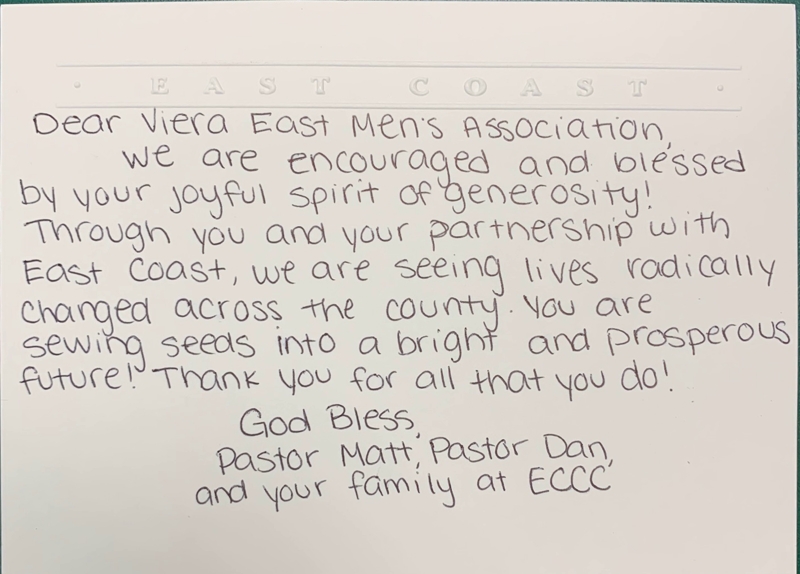 · EAST COAST ·
Dear Viera East Men's Association,
we are encouraged and blessed
by your joyful spirit of generosity!
Through you and your partnership with
East Coast, we are seeing lives radically
changed across the county. You are
sewing seeds into a bright and prosperous
future! Thank you for all that you do!
God Bless,
Pastor Matt, Pastor Dan,
and your family at ECCC